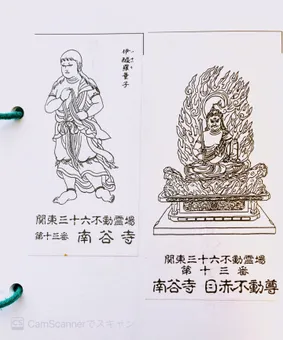 関東三十六不動霊場
第十三番 南谷寺
関東三十六不動霊場
第十三番
南谷寺 目赤不動尊
CamScannerでスキャン